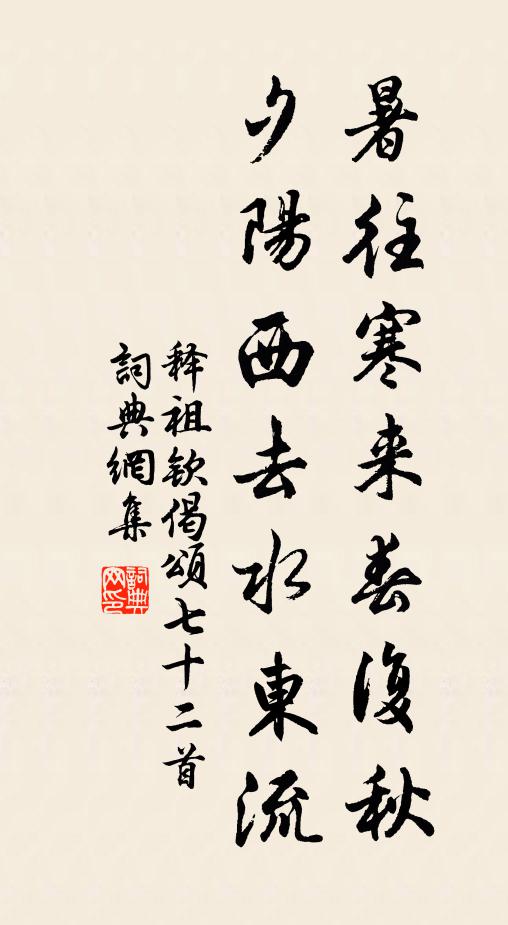 暑往寒来春復秋
夕陽西去水東流
释祖钦偈頌七十二首
詞典網集
詞典网印